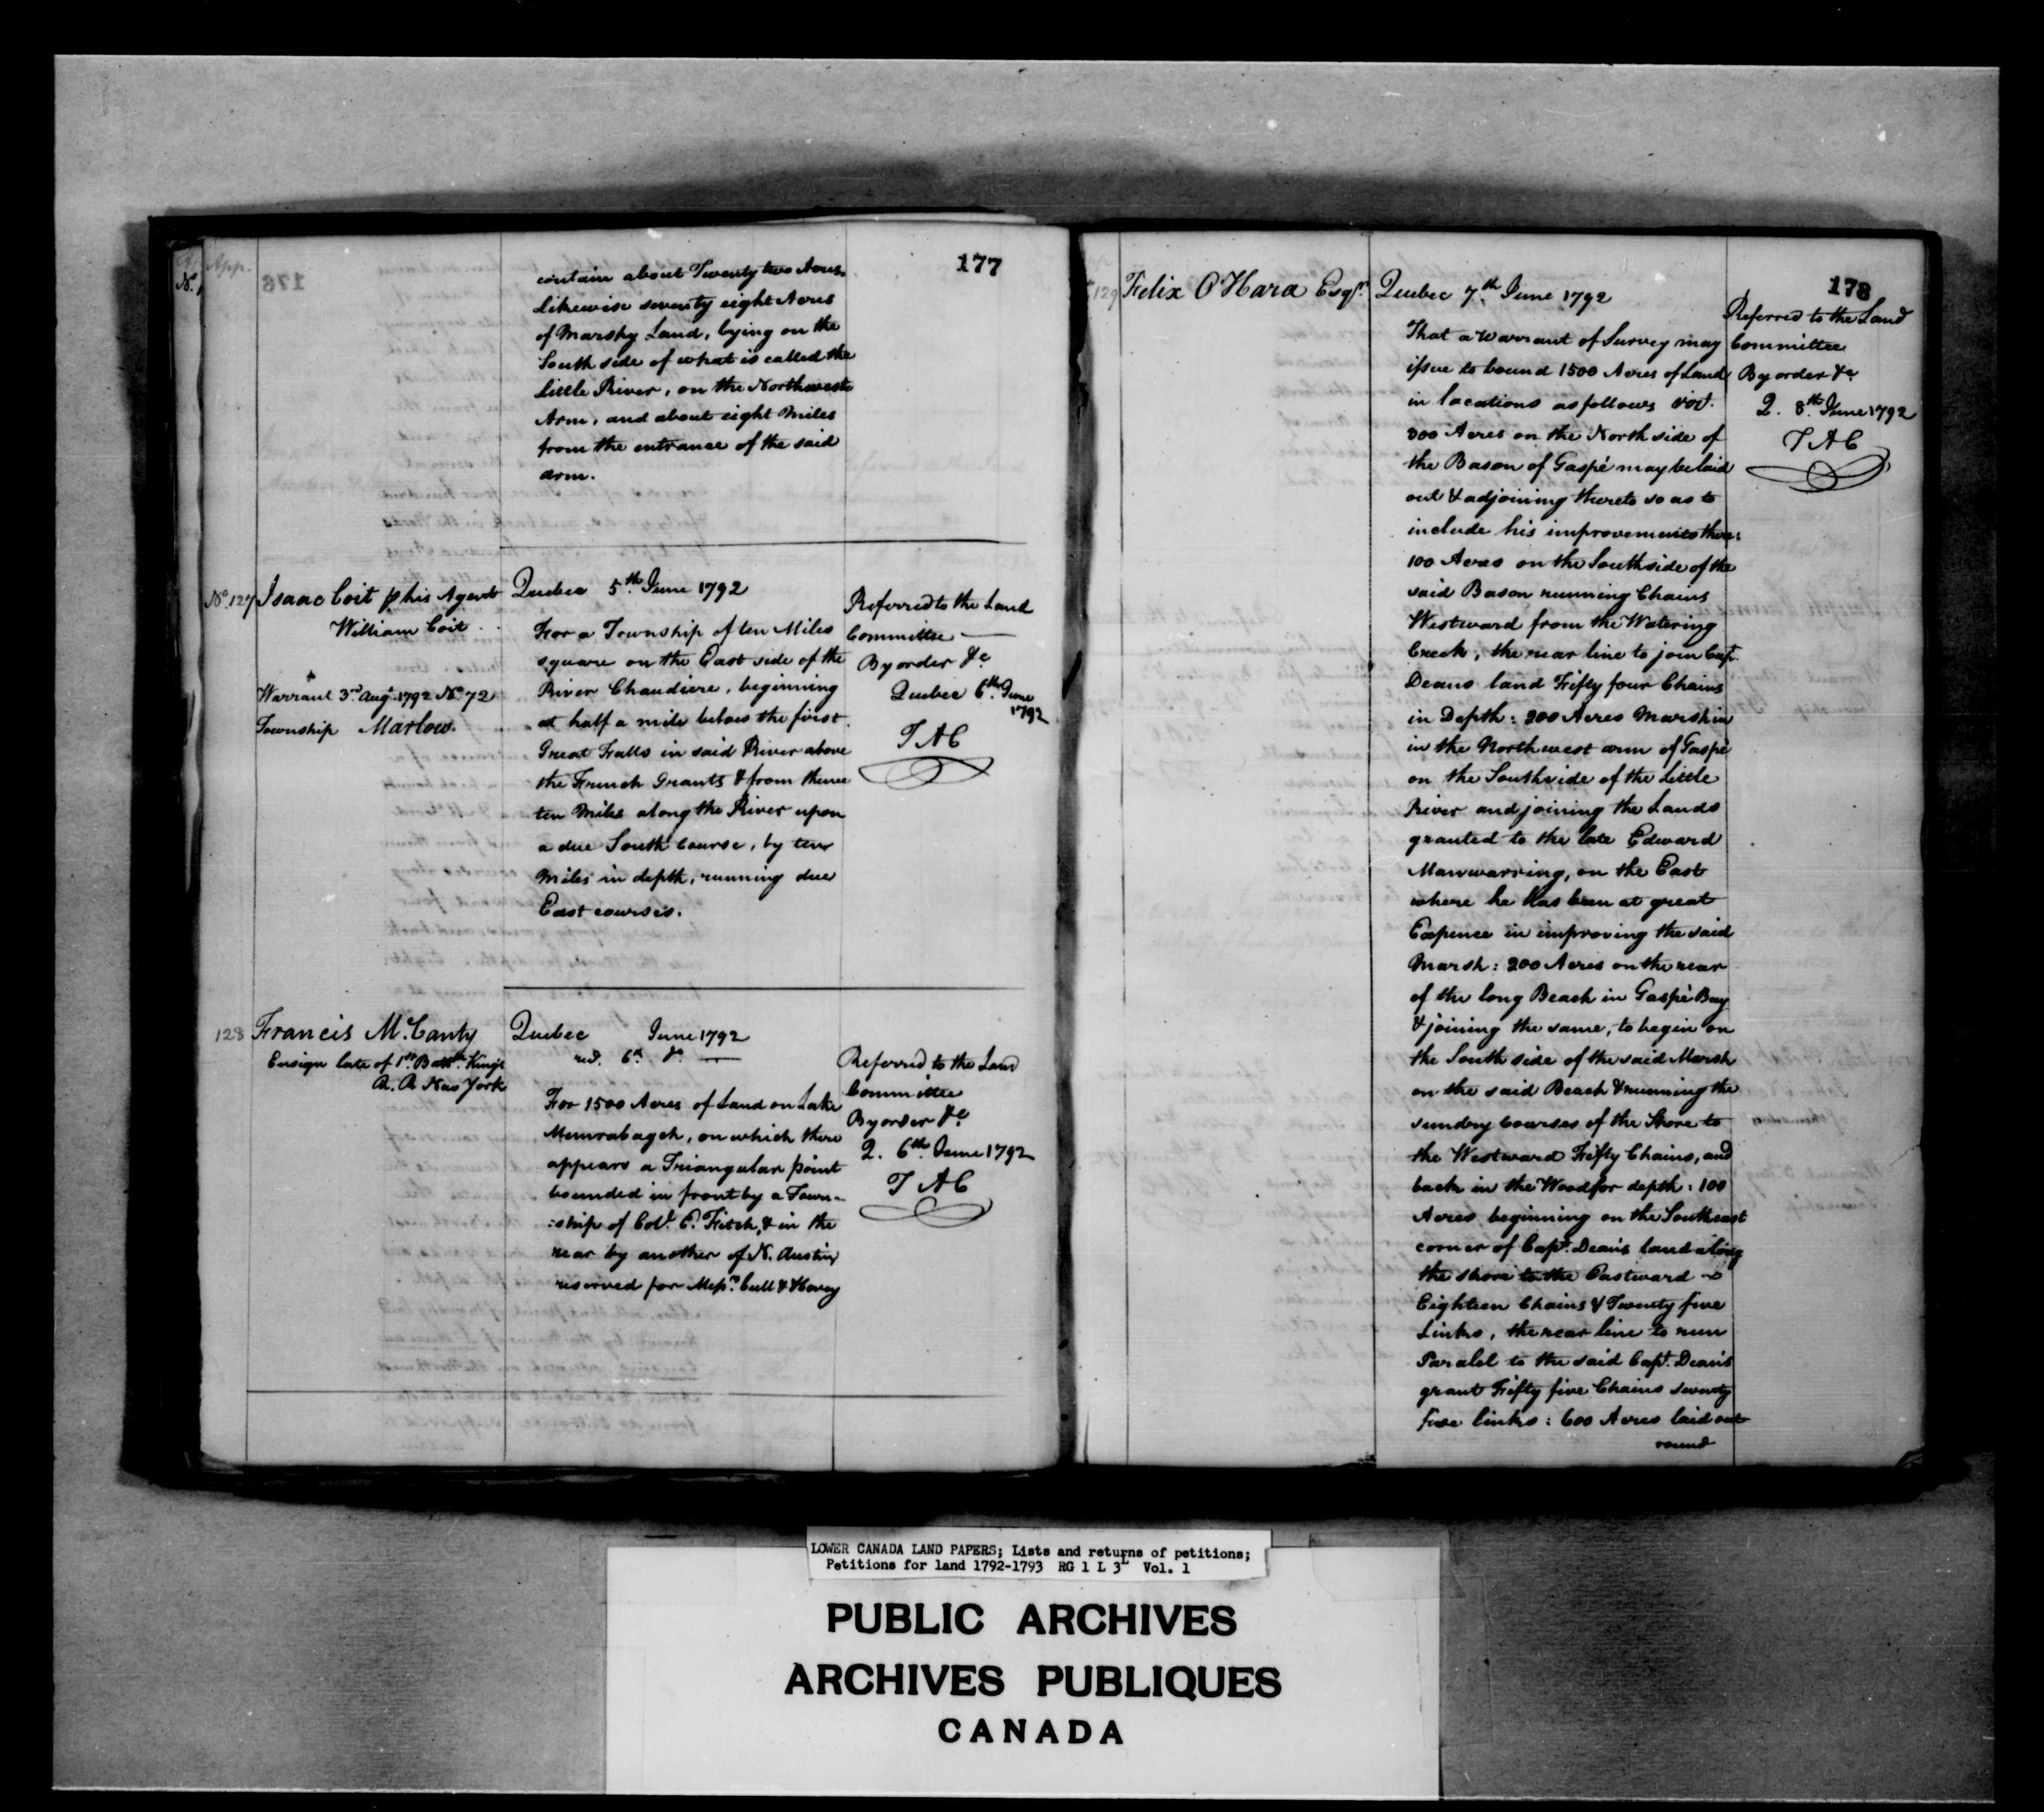 177
App.
No.
contain about Twenty two Acres,
likewise seventy eight Acres
of Marshy Land, lying on the
South side of what is called the
little River, on the Northwest
Arm, and about eight Miles
from the entrance of the said
arm.
No. 127 Isaac Coit p his Agent
William Coit
Warrant 3rd Augt. 1792 No. 72
Township Marlow.
Quebec 5th. June 1792
For a Township of ten Miles
square on the East side of the
River Chaudiere, beginning
at half a mile below the first
Great Falls in said River above
the French Grants & from thence
ten Miles along the River upon
a due South Course, by ten
Miles in depth, running due
East courses.
Referred to the Land
Committee
By order &c
Quebec 6th. June
1792
T A C
128 Francis McCanty
Ensign late of 1st. Battn. King's
R. R. New York
Quebec June 1792
red. 6th do.
For 1500 Acres of Land on Lake
Memrabagek, on which there
appears a Triangular point
bounded in front by a Town-
:ship of Coll. C. Fitch, & in the
rear by another of N. Austin
reserved for Messrs. Cull & Hovey
Referred to the Land
Committee
By order &c
Q. 6th. June 1792
T A C
178
129 Felix O'Hara Esqr.
Quebec 7th June 1792
That a Warrant of Survey may
issue to bound 1500 Acres of Land
in locations as follows vizt.
300 Acres on the North side of
the Bason of Gaspé may be laid
out & adjoining thereto so as to
include his improvements there:
100 Acres on the South side of the
said Bason running Chains
Westward from the Watering
Creek, the rear line to join Capt.
Deans land Fifty four Chains
in Depth: 200 Acres Marsh in
in the Northwest arm of Gaspé
on the South side of the Little
River and joining the Lands
granted to the late Edward
Manwarring, on the East
where he has been at great
Expence in improving the said
Marsh: 200 Acres on the rear
of the long Beach in Gaspé Bay
& joining the same, to begin on
the South side of the said Marsh
on the said Beach & running the
sundry courses of the Shore to
the Westward Fifty Chains, and
back in the Wood for depth: 100
Acres beginning on the Southeast
corner of Capt. Dean's land along
the shore to the Eastward
Eighteen Chains & Twenty five
Links, the rear line to run
Paralel to the said Capt. Dean's
grant Fifty five Chains seventy
five links: 600 Acres laid out
round
Referred to the Land
Committee
By order &c
Q. 8th. June 1792
T A C
LOWER CANADA LAND PAPERS; Lists and returns of petitions;
Petitions for land 1792-1793 RG 1 L 3L Vol. 1
PUBLIC ARCHIVES
ARCHIVES PUBLIQUES
CANADA